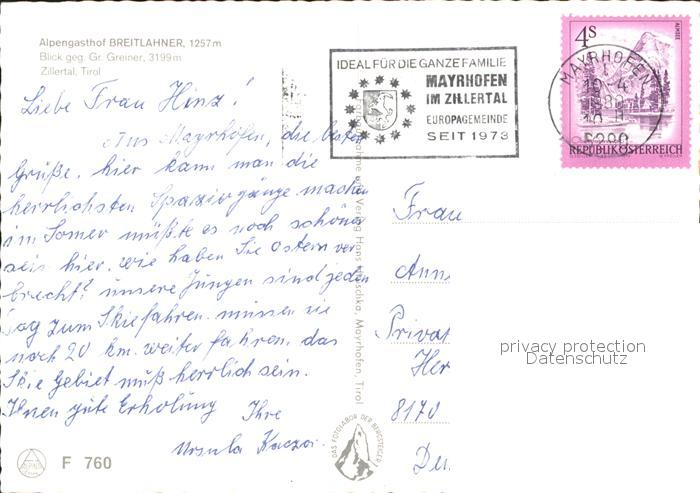 Alpengasthof BREITLAHNER, 1257m
Blick geg. Gr. Greiner, 3199m
Zillertal, Tirol
Liebe Frau Hinz!
Aus Mayrhofen, die besten
Grüße, hier kann man die
herrlichsten Spaziergänge machen
im Somer müßte es noch schöner
sein hier. wie haben Sie Ostern ver
bracht? unsere Jungen sind jeden
Tag zum Skiefahren. müssen sie
noch 20 km. weiter fahren, das
Skie Gebiet muß herrlich sein.
Ihnen gute Erholung Ihre
Ursula
F 760
IDEAL FÜR DIE GANZE FAMILIE
MAYRHOFEN
IM ZILLERTAL
EUROPAGEMEINDE
SEIT 1973
MAYRHOFEN
6290
4S
ALMSEE
REPUBLIK ÖSTERREICH
Verlag Hans Mayrhofen, Tirol
DAS FOTOLABOR DER BERGSTEIGER
Frau
Ann
Privat
Her
8170
De
privacy protection
Datenschutz